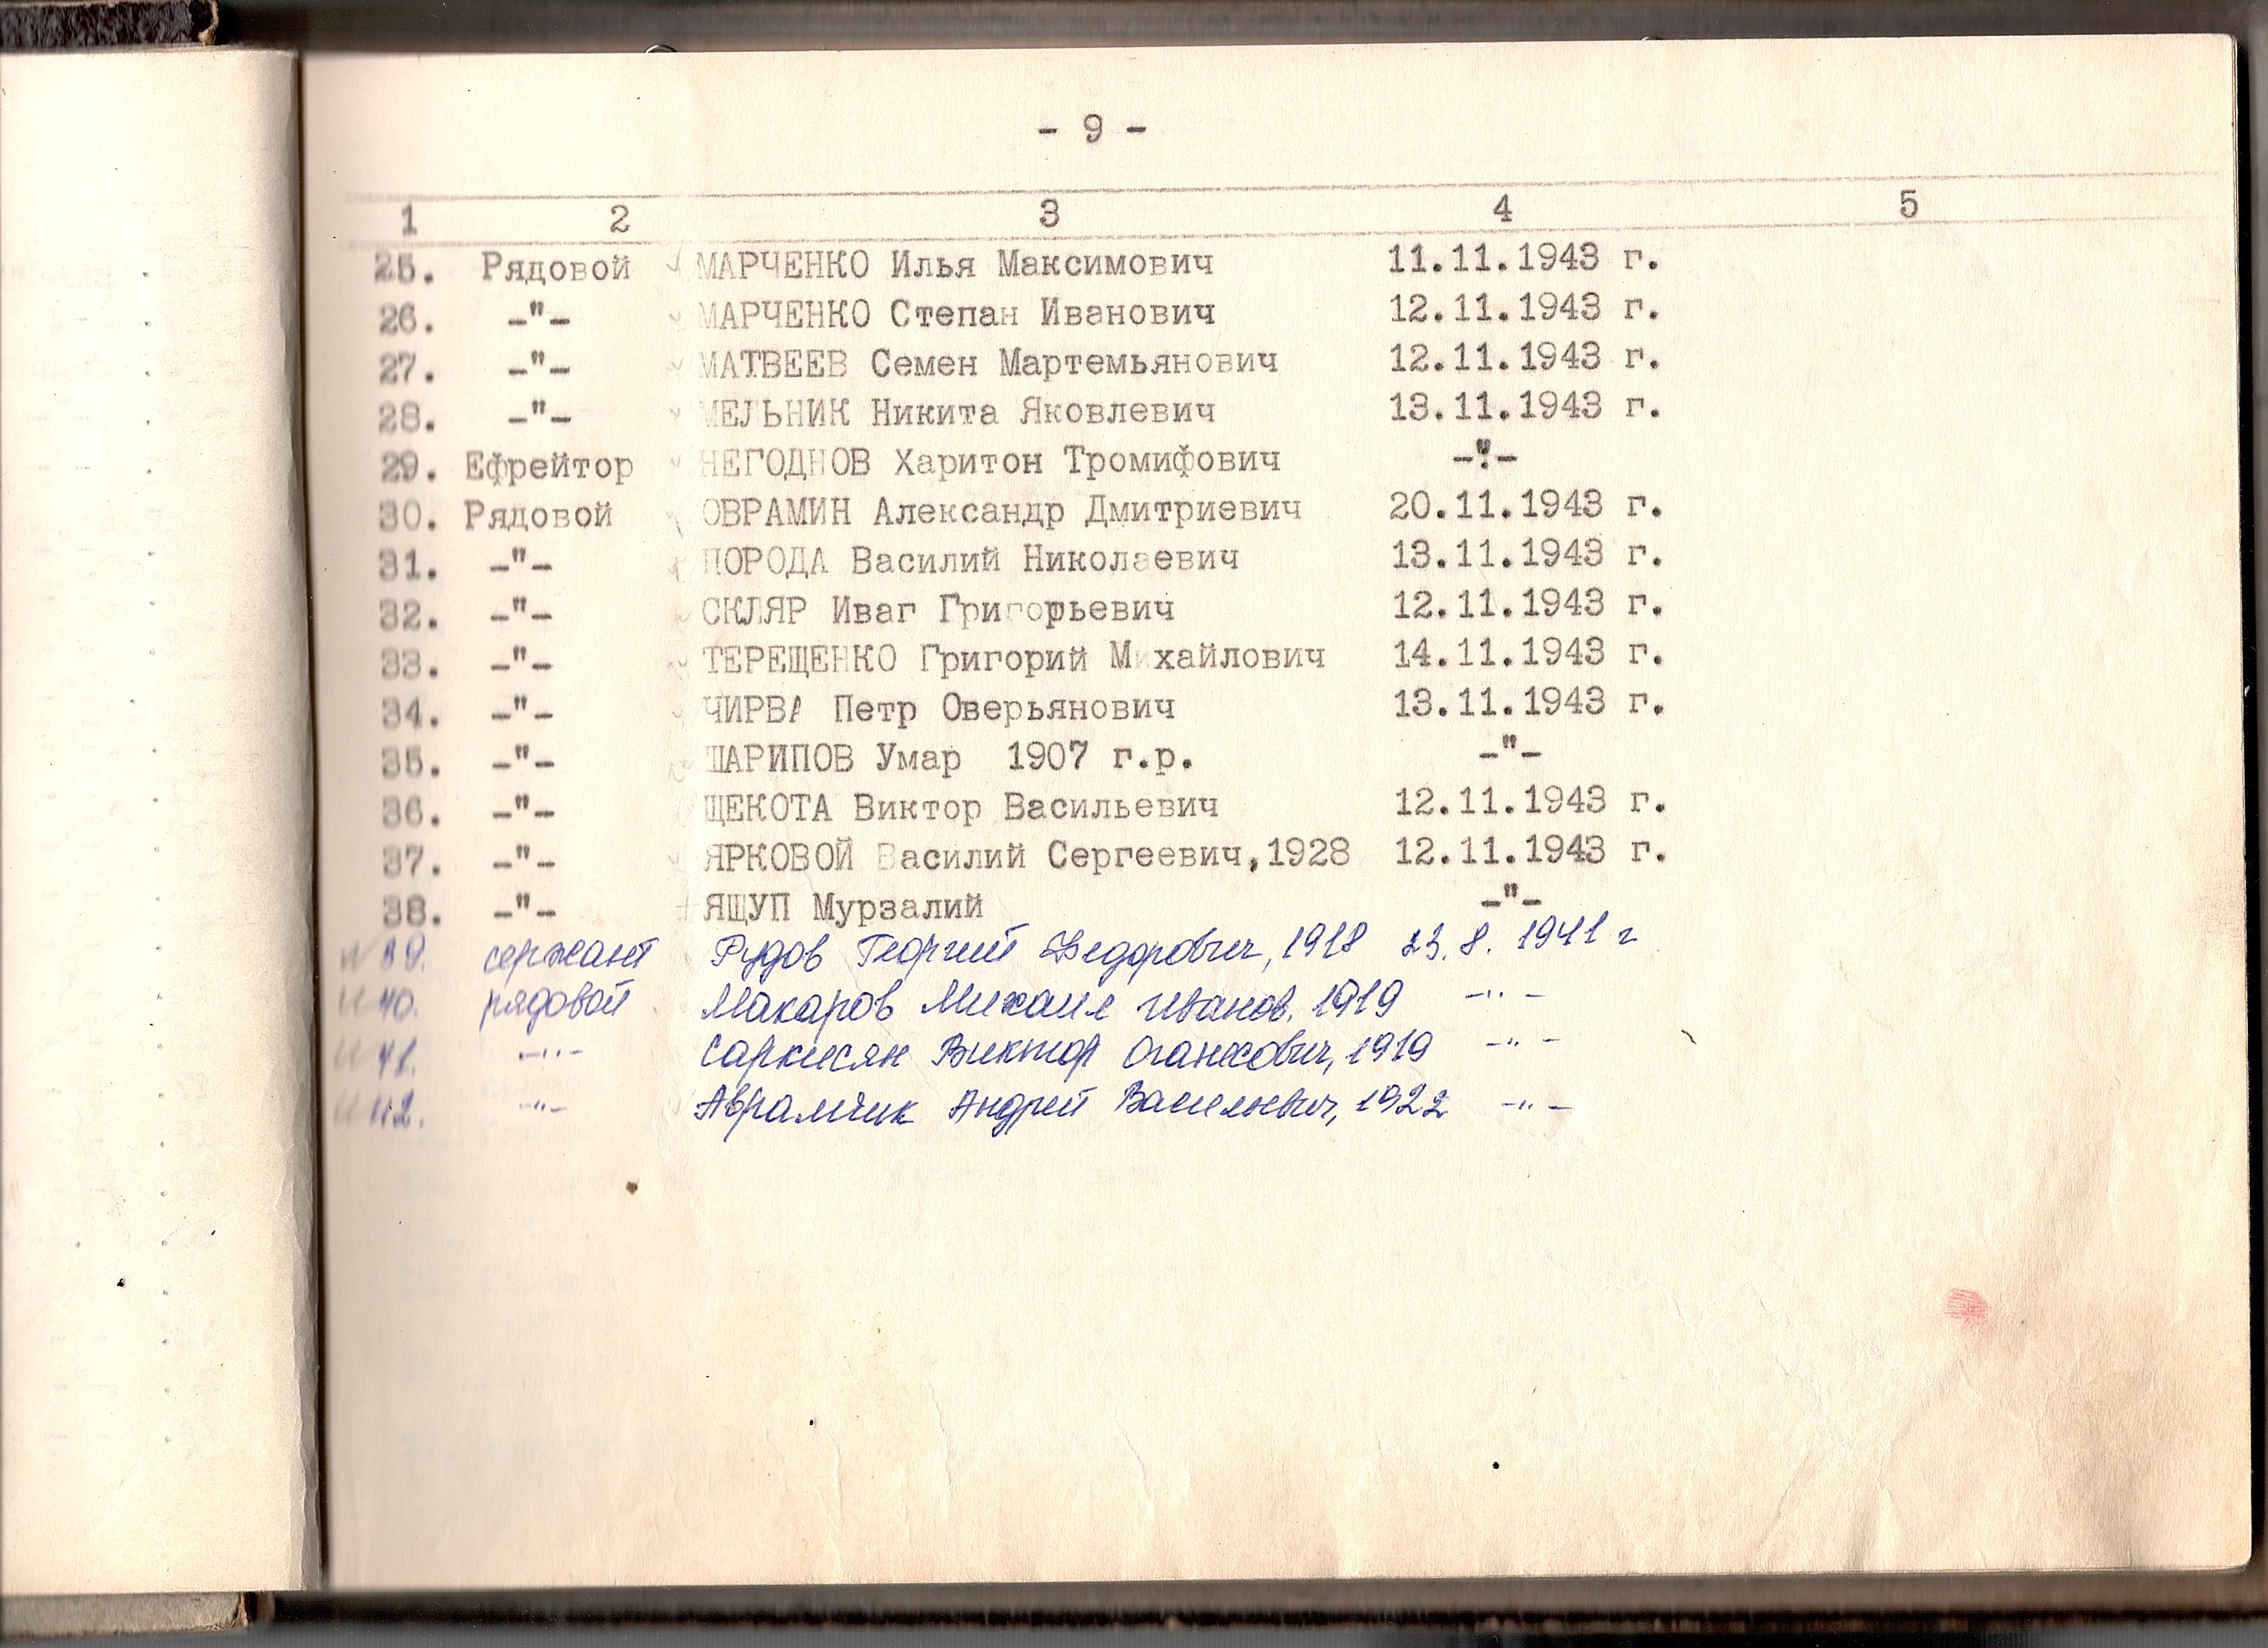 - 9 -
1 2 3 4 5
25. Рядовой МАРЧЕНКО Илья Максимович 11.11.1943 г.
26. -"- МАРЧЕНКО Степан Иванович 12.11.1943 г.
27. -"- МАТВЕЕВ Семен Мартемьянович 12.11.1943 г.
28. -"- МЕЛЬНИК Никита Яковлевич 13.11.1943 г.
29. Ефрейтор НЕГОДНОВ Харитон Тромифович -"-
30. Рядовой ОВРАМИН Александр Дмитриевич 20.11.1943 г.
31. -"- ПОРОДА Василий Николаевич 13.11.1943 г.
32. -"- СКЛЯР Иваг Григорьевич 12.11.1943 г.
33. -"- ТЕРЕЩЕНКО Григорий Михайлович 14.11.1943 г.
34. -"- ЧИРВА Петр Оверьянович 13.11.1943 г.
35. -"- ШАРИПОВ Умар 1907 г.р. -"-
36. -"- ЩЕКОТА Виктор Васильевич 12.11.1943 г.
37. -"- ЯРКОВОЙ Василий Сергеевич,1928 12.11.1943 г.
38. -"- ЯЩУП Мурзалий -"-
39. сержант Рудов Георгий Федорович, 1918 23.8.1941 г
40. рядовой Макаров Михаил Иванов. 1919 -"-
41. -"- Саркисян Виктор Оганесович, 1919 -"-
42. -"- Аврамчик Андрей Васильевич, 1922 -"-